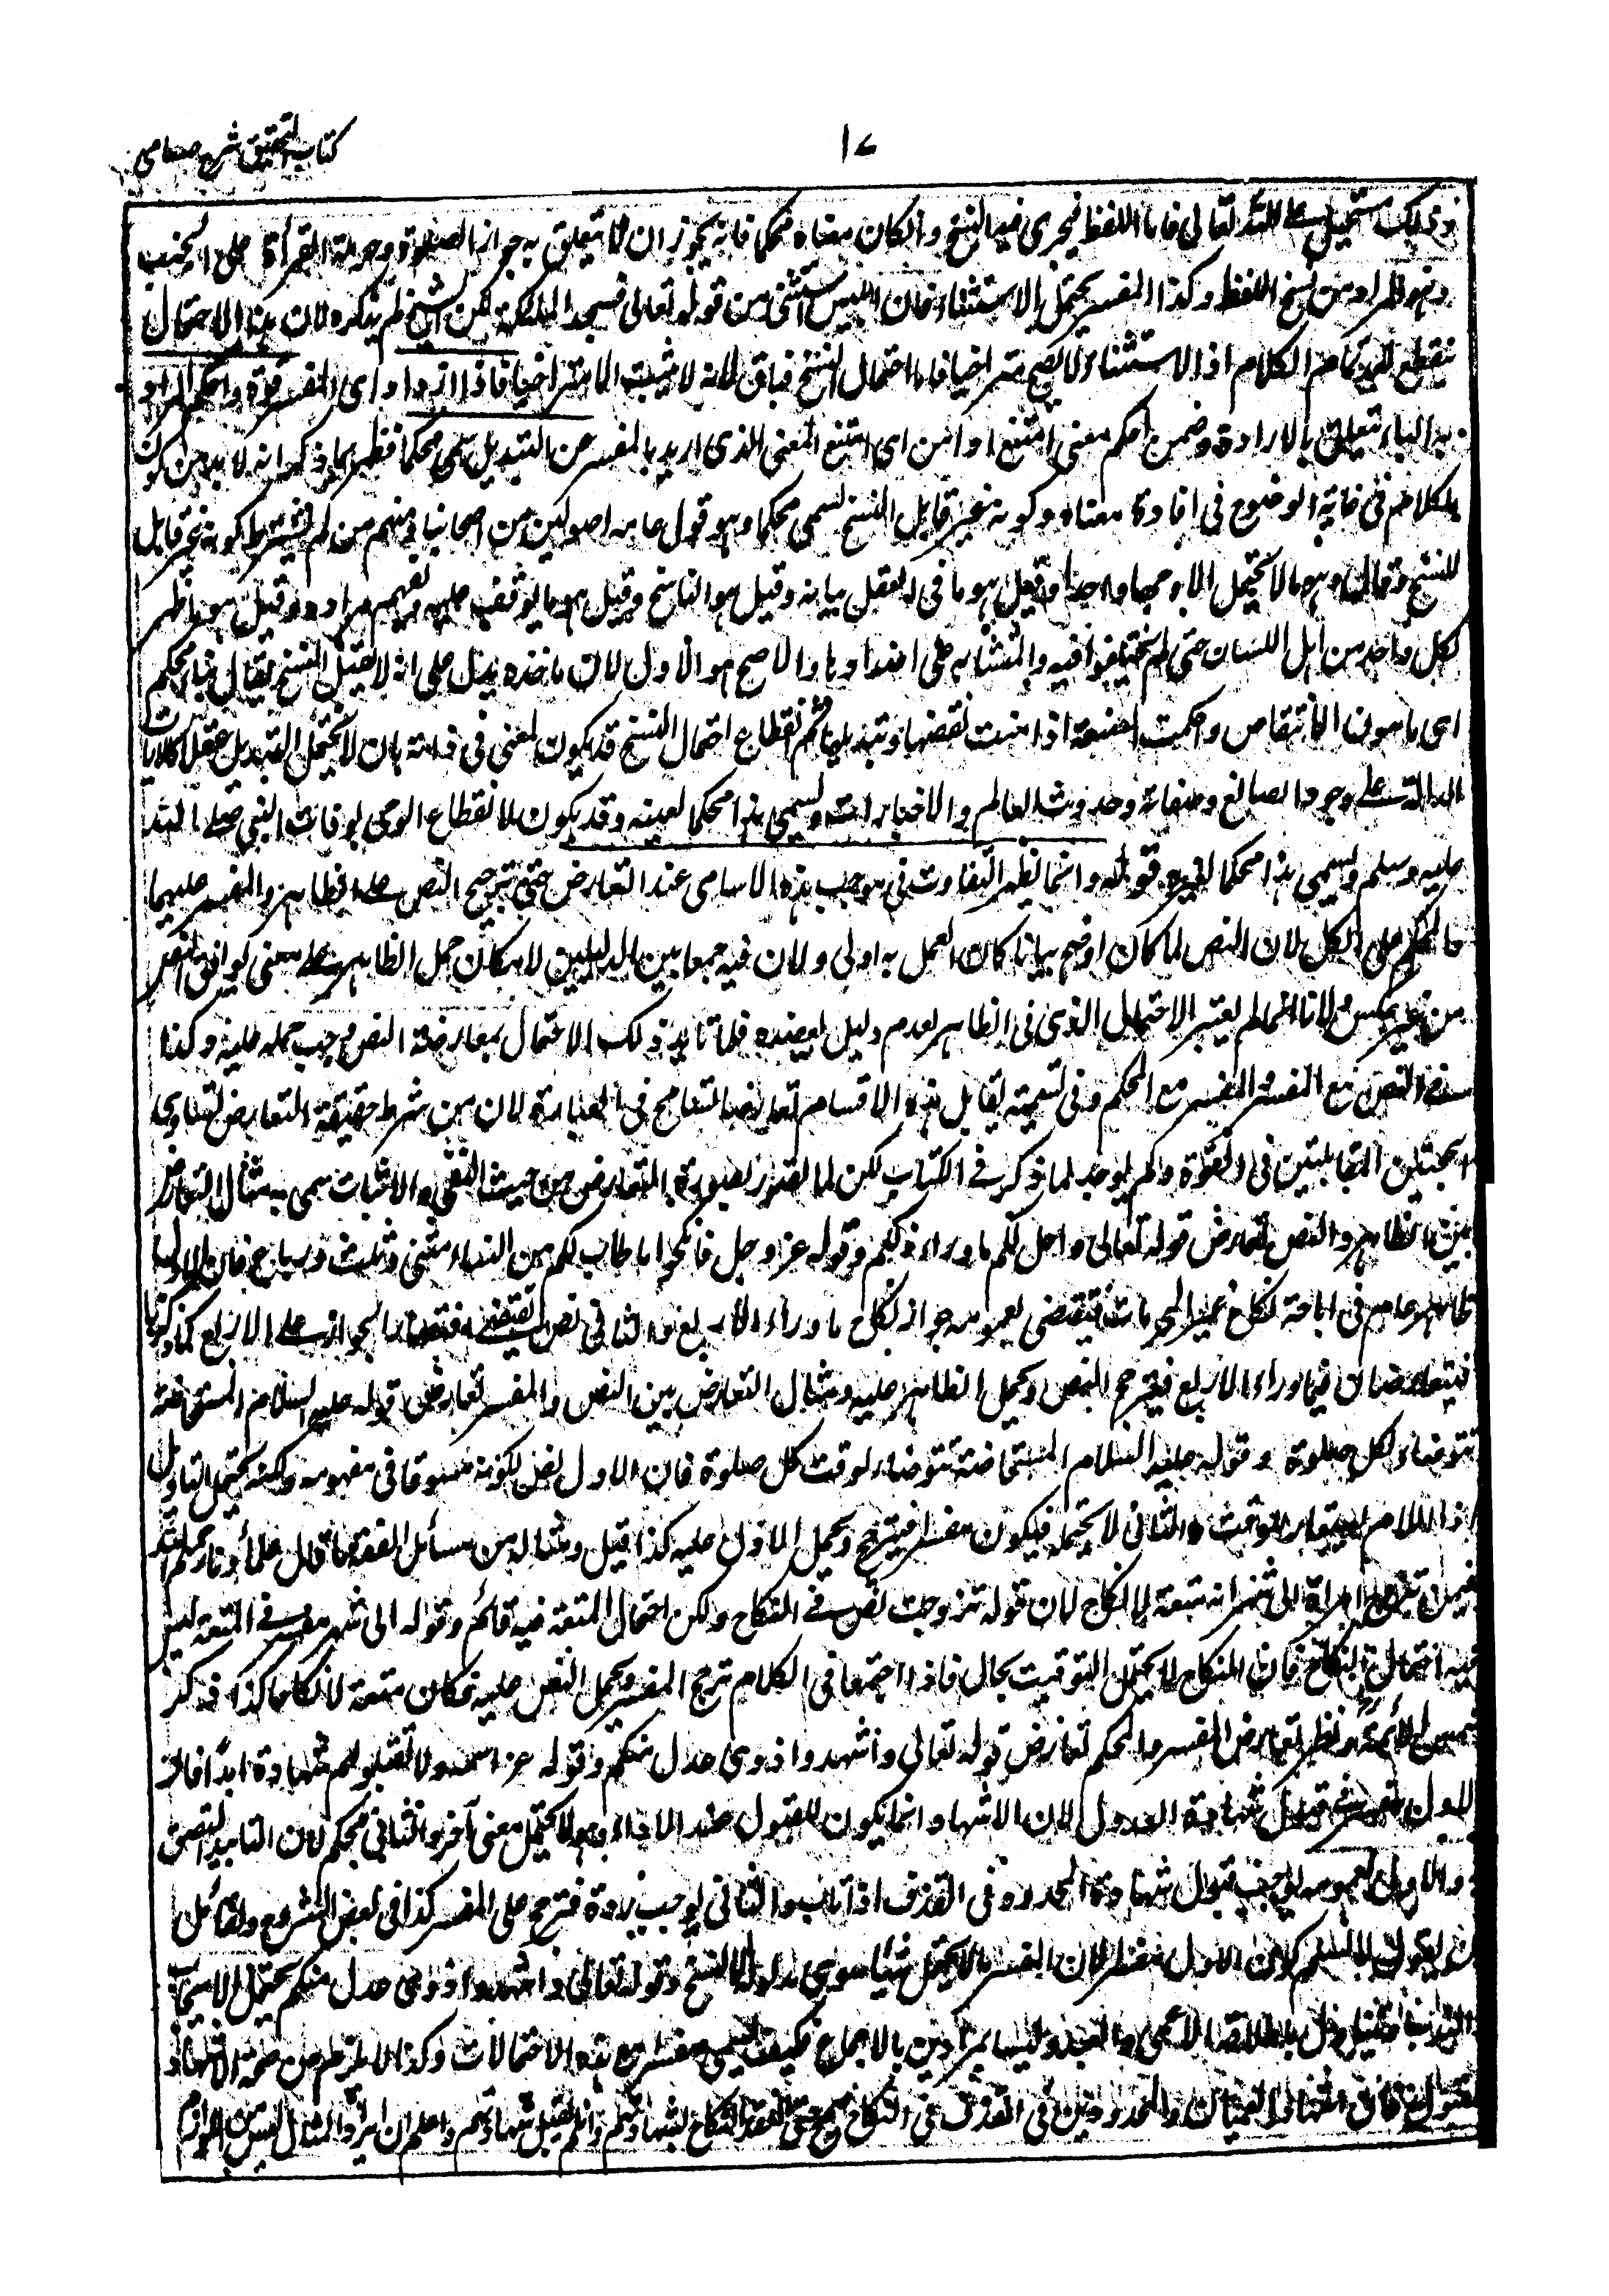 ١٧
كتاب التحقيق شرح حسامى
وذلك مستحيل على الله تعالى فاما اللفظ فيجرى فيه النسخ وان كان معناه محكما فانه يجوز ان لا يتعلق به جواز الصلوة وحرمة القرأة على الجنب
وهو المراد من نسخ اللفظ وكذا المفسر يحتمل الاستثناء فان ابليس استثنى من قوله تعالى فسجد الملئكة لكن الشيخ لم يذكره لان هذا الاحتمال
ينقطع لدى تمام الكلام اذ الاستثناء لا يصح متراخيا فاما احتمال النسخ فباق لانه لا يثبت الا متراخيا فاذا ازداد اى المفسر قوة واحكم المراد
به الباء تتعلق بالارادة وضمن احكم معنى امتنع او امن اى امتنع المعنى الذى اريد بالمفسر عن التبديل سمى محكما فظهر بما ذكر انه لا بد من كون
الكلام فى غاية الوضوح فى افادة معناه وكونه غير قابل النسخ ليسمى محكما وهو قول عامة اصوليين من اصحابنا ومنهم من لم يشترط كونه غير قابل
للنسخ وقال هو ما لا يحتمل الا وجها واحدا وقيل هو ما فى العقل بيانه وقيل هو الناسخ وقيل هو ما يوقف عليه ويفهم مراده وقيل هو ما ظهر
لكل واحد من اهل اللسان حتى لم يختلفوا فيه والمتشابه على اضدادها والاصح هو الاول لان ماخذه يدل على انه لا يقبل النسخ يقال بناء محكم
اى مامون الانتقاض واحكمت الصنعة اذا امنت نقضها وتبديلها ثم انقطاع احتمال النسخ قد يكون لمعنى فى ذاته بان لا يحتمل التبديل عقلا كالايات
الدالة على وجود الصانع وصفاته وحدوث العالم والاخبارات ويسمى هذا محكما لعينه وقد يكون لانقطاع الوحى بوفات النبى صلى الله
عليه وسلم ويسمى هذا محكما لغيره قوله وانما يظهر التفاوت فى موجب هذه الاسامى عند التعارض حتى يترجح النص على الظاهر والمفسر عليهما
والمحكم على الكل لان النص لما كان اوضح بيانا كان العمل به اولى ولان فيه جمعا بين الدليلين لامكان حمل الظاهر على معنى يوافق النص
من غير عكس ولانا انما لم نعتبر الاحتمال الذى فى الظاهر لعدم دليل يعضده فلما تايد ذلك الاحتمال بمعارضة النص وجب حمله عليه وكذا
النص مع المفسر والمفسر مع المحكم وفى تسمية تقابل هذه الاقسام تعارضا تسامح فى العبارة لان من شرط حقيقة التعارض تساوى
الحجتين المتقابلتين فى القوة ولم يوجد لما ذكر فى الكتاب لكن لما تصور بصورة التعارض من حيث النفى والاثبات سمى به مثال التعارض
بين الظاهر والنص تعارض قوله تعالى واحل لكم ما وراء ذلكم وقوله عز وجل فانكحوا ما طاب لكم من النساء مثنى وثلث ورباع فان الاول
ظاهر عام فى اباحة نكاح غير المحرمات فيقتضى بعمومه جواز نكاح ما وراء الاربع والثانى نص يقتضى اقتصار الجواز على الاربع كما ذكرنا
فيتعارضان فيما وراء الاربع فيترجح النص ويحمل الظاهر عليه ومثال التعارض بين النص والمفسر تعارض قوله عليه السلام المستحاضة
تتوضاء لكل صلوة وقوله عليه السلام المستحاضة تتوضاء لوقت كل صلوة فان الاول نص لكونه مسوقا فى مفهومه ولكنه يحتمل التاويل
اذ اللام يستعار للوقت والثانى لا يحتمله فيكون مفسرا فيترجح ويحمل الاول عليه كذا قيل ومثاله من مسائل الفقه ما قال علماؤنا رحمهم الله
فيمن تزوج امراة الى شهر انه متعة لا نكاح لان قوله تزوجت نص فى النكاح ولكن احتمال المتعة فيه قائم وقوله الى شهر مفسر فى المتعة ليس
فيه احتمال النكاح فان النكاح لا يحتمل التوقيت بحال فاذا اجتمعا فى الكلام ترجح المفسر ويحمل النص عليه فكان متعة لا نكاحا كذا ذكر
شمس الائمة ونظير تعارض المفسر والمحكم تعارض قوله تعالى واشهدوا ذوى عدل منكم وقوله عز اسمه ولا تقبلوا لهم شهادة ابدا فان
الاول مفسر فى قبول شهادة العدول لان الاشهاد انما يكون للقبول عند الاداء وهو لا يحتمل معنى آخر والثانى محكم لان التابيد التحق
به والاول بعمومه يوجب قبول شهادة المحدود فى القذف اذا تاب والثانى يوجب رده فترجح على المفسر كذا فى بعض الشروح ولقائل
ان يقول لا نسلم كون الاول مفسرا لان المفسر ما لا يحتمل شيئا سوى مدلوله الا النسخ وقوله تعالى واشهدوا ذوى عدل منكم يحتمل الايجاب
والندب ويتناول باطلاقه الاعمى والعبد وليسا بمرادين بالاجماع فكيف يسمى مفسرا مع هذه الاحتمالات وكذا لا يلزم من صحة الاشهاد
القبول فان اشهاد العميان والمحدودين فى القذف فى النكاح صحيح حتى انعقد النكاح بشهادتهم وان لم يقبل شهادتهم واعلم ان ايراد المثال ليس من اللوازم